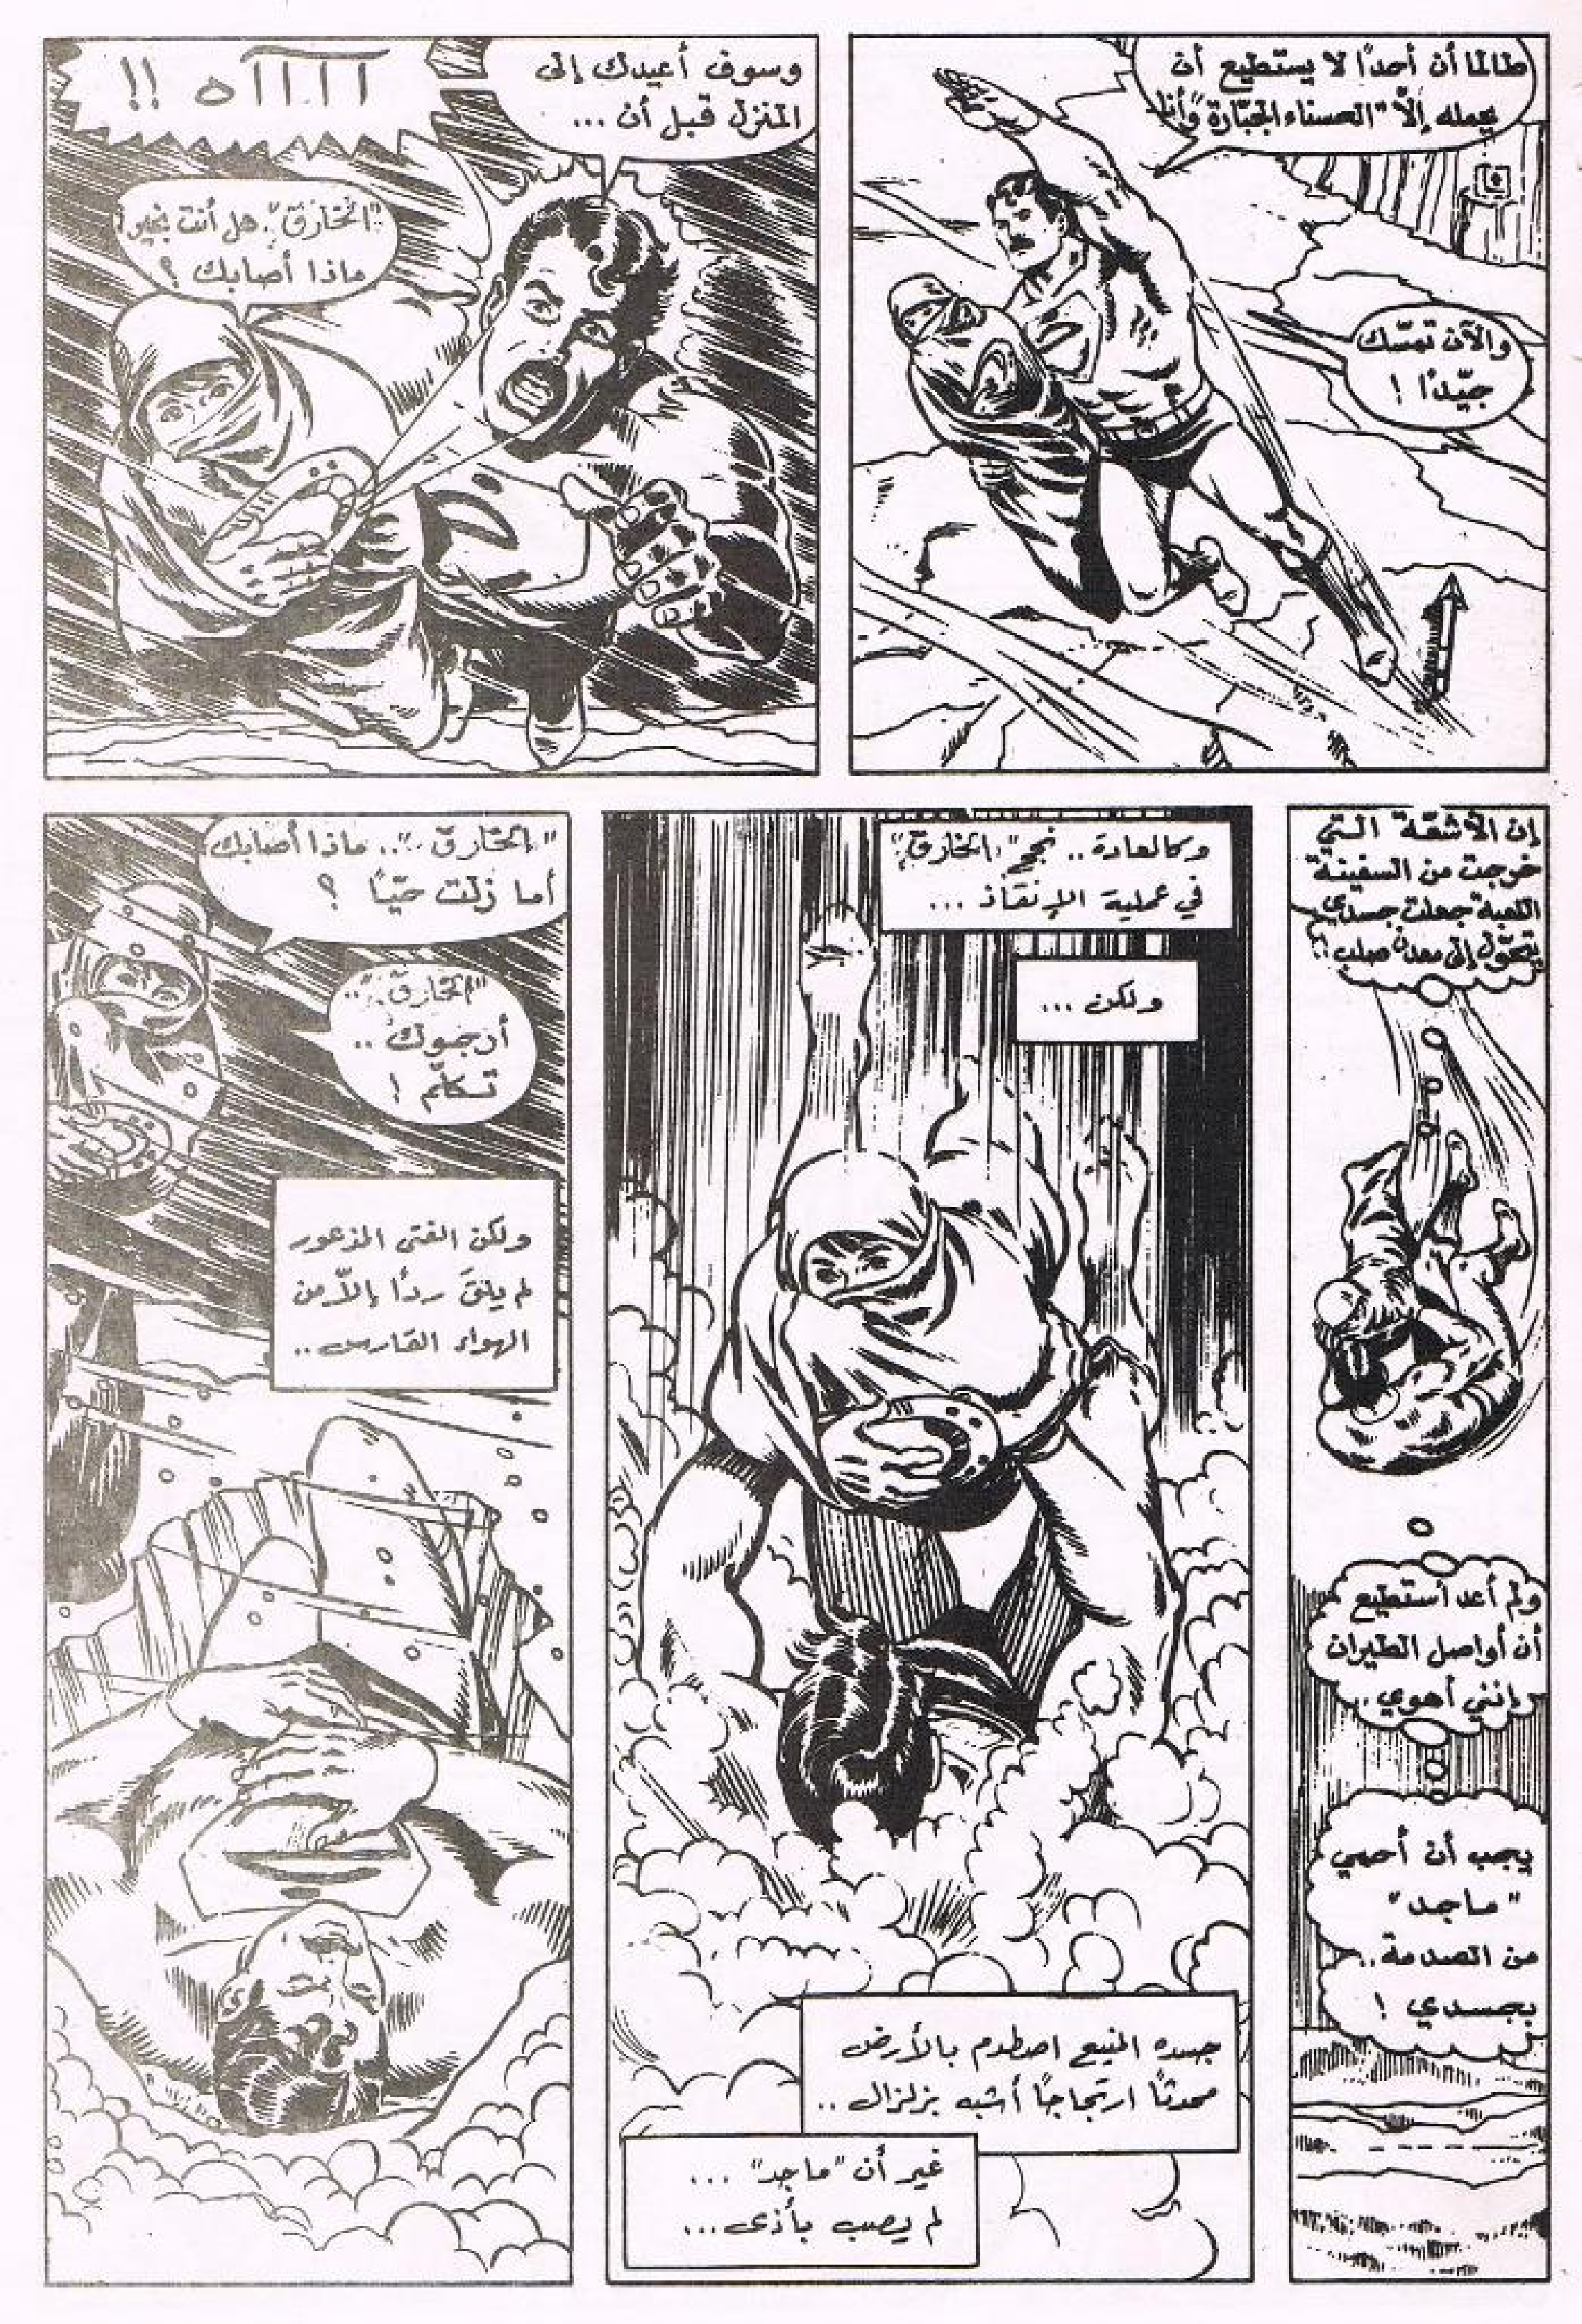 طالما أن أحدًا لا يستطيع أن
يعمله إلّا "الحسناء الجبّارة" وأنا
والآن تمسّك
جيّدًا !
وسوف أعيدك إلى
المنزل قبل أن ...
آآآآه !!
"الخارق".. هل أنت بخير؟
ماذا أصابك ؟
إن الأشعّة التي
خرجت من السفينة
اللعبة جعلت جسدي
يتحوّل إلى معدن صلب !!
ولم أعد أستطيع
أن أواصل الطيران
إنني أهوي ..
يجب أن أحمي
"ماجد"
من الصدمة ..
بجسدي !
وكالعادة .. نجح "الخارق"
في عملية الإنقاذ ...
ولكن ...
جسده المنيع اصطدم بالأرض
محدثًا ارتجاجًا أشبه بزلزال ..
غير أن "ماجد" ...
لم يصب بأذى ...
"الخارق".. ماذا أصابك
أما زلت حيًّا ؟
"الخارق"..
أرجوك ..
تكلّم !
ولكن الفتى المذعور
لم يلقَ ردًا إلّا من
الهواء القارس ..